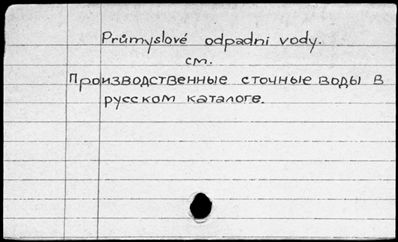 Průmyslové odpadni vody.
см.
Производственные сточные воды в
русском каталоге.